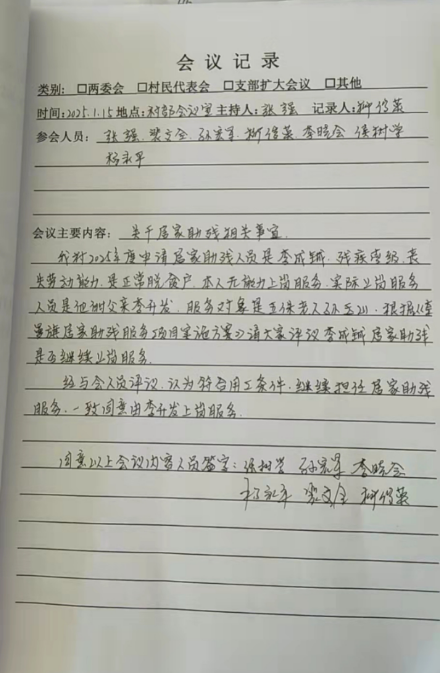 会议记录
类别: □两委会 □村民代表会 □支部扩大会议 □其他
时间:2025.1.15 地点:村部会议室 主持人:张强 记录人:柳俊英
参会人员: 张强 梁文全 孙宏军 柳俊英 李晓会 侯树学
杨永平
会议主要内容: 关于居家助残相关事宜
我村2025年度申请居家助残人员是李成钢,残疾壹级,丧
失劳动能力,是正常脱贫户,本人无能力上岗服务,实际上岗服务
人员是他的父亲李开发,服务对象是五保老人孙,根据《
旗居家助残服务项目实施方案》请大家评议李成钢居家助残
是否继续上岗服务。
经与会人员评议,认为符合用工条件,继续担任居家助残
服务,一致同意由李开发上岗服务。
同意以上会议内容人员签字: 侯树学 孙宏军 李晓会
杨永平 梁文全 柳俊英